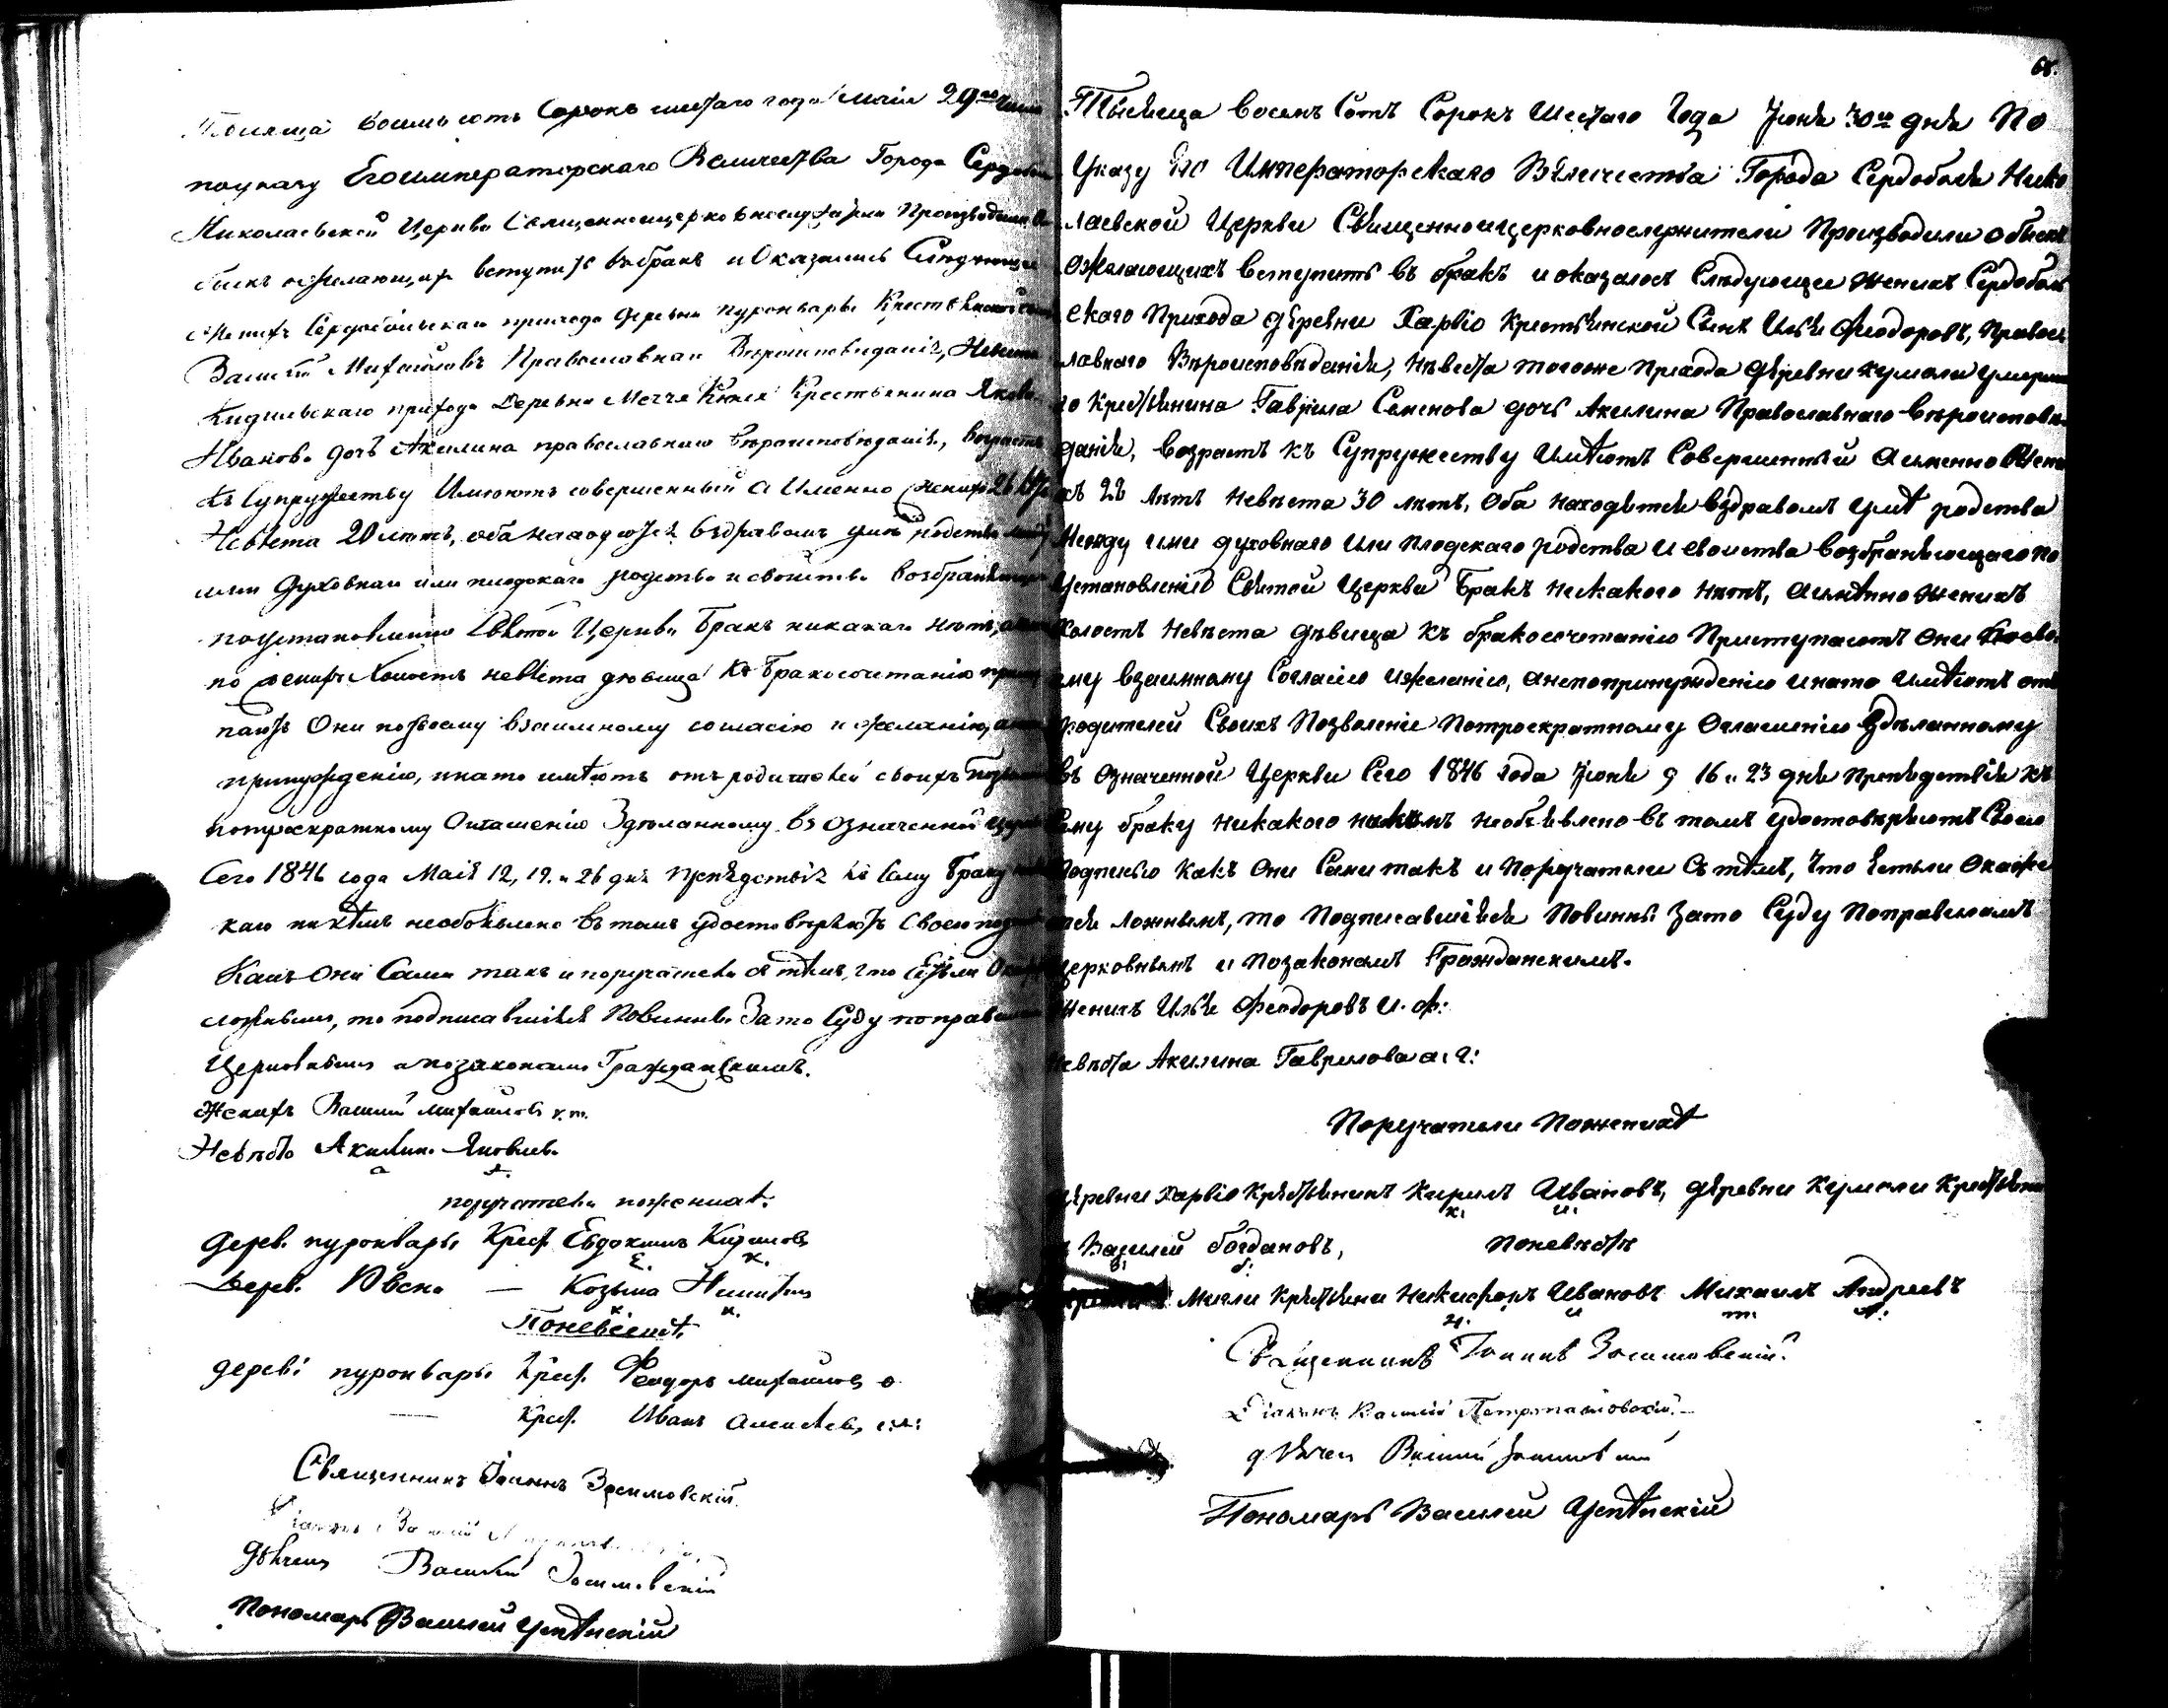 Тысяща восемь сотъ Сорокъ шестаго года Маія 29го
по указу Его императорскаго Величества Города
Николаевской Церкви Священноицерковнослужители Производили
быскъ ожелающихъ вступить въ бракъ и Оказались Слѣдующее
Женихъ Сердобольскаго прихода деревни пуронвары
Василій Михайловъ Православнаго Вѣроисповѣданія, Невѣста
прихода Деревни Крестьянина Якова
Иванова дочь Акилина православнаго вѣроисповѣданія, возрастъ
къ Супружеству Имѣютъ совершенный а Именно женихъ 26
Невѣста 20 лѣтъ, оба находятся въздравомъ умѣ родства
ими Духовнаго или плодскаго родства и свойства возбраняющаго
поустановленію Святой Церкви Бракъ никакаго нѣтъ,
но женихъ Холостъ невѣста дѣвица къ Бракосочетанію
паютъ Они посвоему взаимному согласію и желанію,
принужденію, инато имѣютъ отъ родителей своихъ
потроекратному Оглашенію Здѣланному въ означенной
Сего 1846 года Маія 12, 19. и 26 дня препядствія къ Сему браку
каго никѣмъ необъявлено въ томъ удостовѣряютъ своею
Какъ Они Сами такъ и поручатели съ тѣмъ, что Естьли
ложнымъ, то подписавшіися Повинны За то Суду поправиламъ
Церковнымъ и позаконамъ Гражданскимъ.
Женихъ Василій михайловъ
Невѣста Акилина Яковлева
поручатели пожених
дерев. пуронвары Крест. Евдокимъ Кириловъ
Е. К.
— Козьма Никитинъ
к. н.
Поневѣстѣ
дерев: пуронвары Крест. Феодоръ михайловъ
— Крест. Иванъ Алексѣевъ
Священникъ Іоаннъ Зосимовскій
Діаконъ Василій
дьячекъ Василій Зосимовскій
Пономарь Василей Успѣнскій
68.
Тысяща восемь Сотъ Сорокъ Шестаго Года Іюня 30го дня По
Указу Его Императорскаго Величества Города Сердоболя Нико
лаевской Церкви Священноицерковнослужители Производили обыскъ
ожелающихъ вступить въ бракъ и оказалось Слѣдующее Женихъ Сердоболь
скаго Прихода деревни Харвіо Крестьянской Сынъ Илья Феодоровъ, Правос
лавнаго Вѣроисповѣданія, невѣста тогоже Прихода деревни кумоли умерша
го Крестьянина Гаврила Семенова дочь Акилина Православнаго вѣроисповѣ
данія, возрастъ къ Супружеству Имѣютъ Совершенный а именно Жени
хъ 22 лѣтъ Невѣста 30 лѣтъ, Оба находятся въздравомъ умѣ родства
Между ими духовнаго или плодскаго родства и свойства возбраняющаго по
Установленію Святой Церкви бракъ никакого нѣтъ, аимянно женихъ
Холостъ невѣста дѣвица къ бракосочетанію Приступаютъ Они посво
ему взаимному Согласію ижеланію, анепопринужденію инато имѣютъ отъ
родителей Своихъ Позволеніе Потроекратному Оглашенію Здѣланному
въ Означенной Церкви Сего 1846 года Іюня 9 16 и 23 дня препядствія къ
Сему браку никакого никѣмъ необъявлено въ томъ удостовѣряютъ Своею
Подписью какъ Они Сами такъ и Поручатели Съ тѣмъ, что Естьли Окаже
тся ложнымъ, то Подписавшіися Повинны зато Суду Поправиламъ
церковнымъ и Позаконамъ Гражданскимъ.
Женихъ Илья Феодоровъ И. Ф:
Невѣста Акилина Гаврилова а: г:
Поручатели Поженихѣ
деревни Харвіо Крестьянинъ Кирилъ Ивановъ, деревни Кумоли Крестьяни
к. и.
Василей богдановъ, поневѣстѣ
в: б:
Мигли Крестьяни Никифоръ Ивановъ Михаилъ Андреевъ
н. и м. А:
Священникъ Іоаннъ Зосимовскій
Діаконъ Василій Петропавловскій
дьячекъ Василій Зосимовскій
Пономарь Василей Успѣнскій